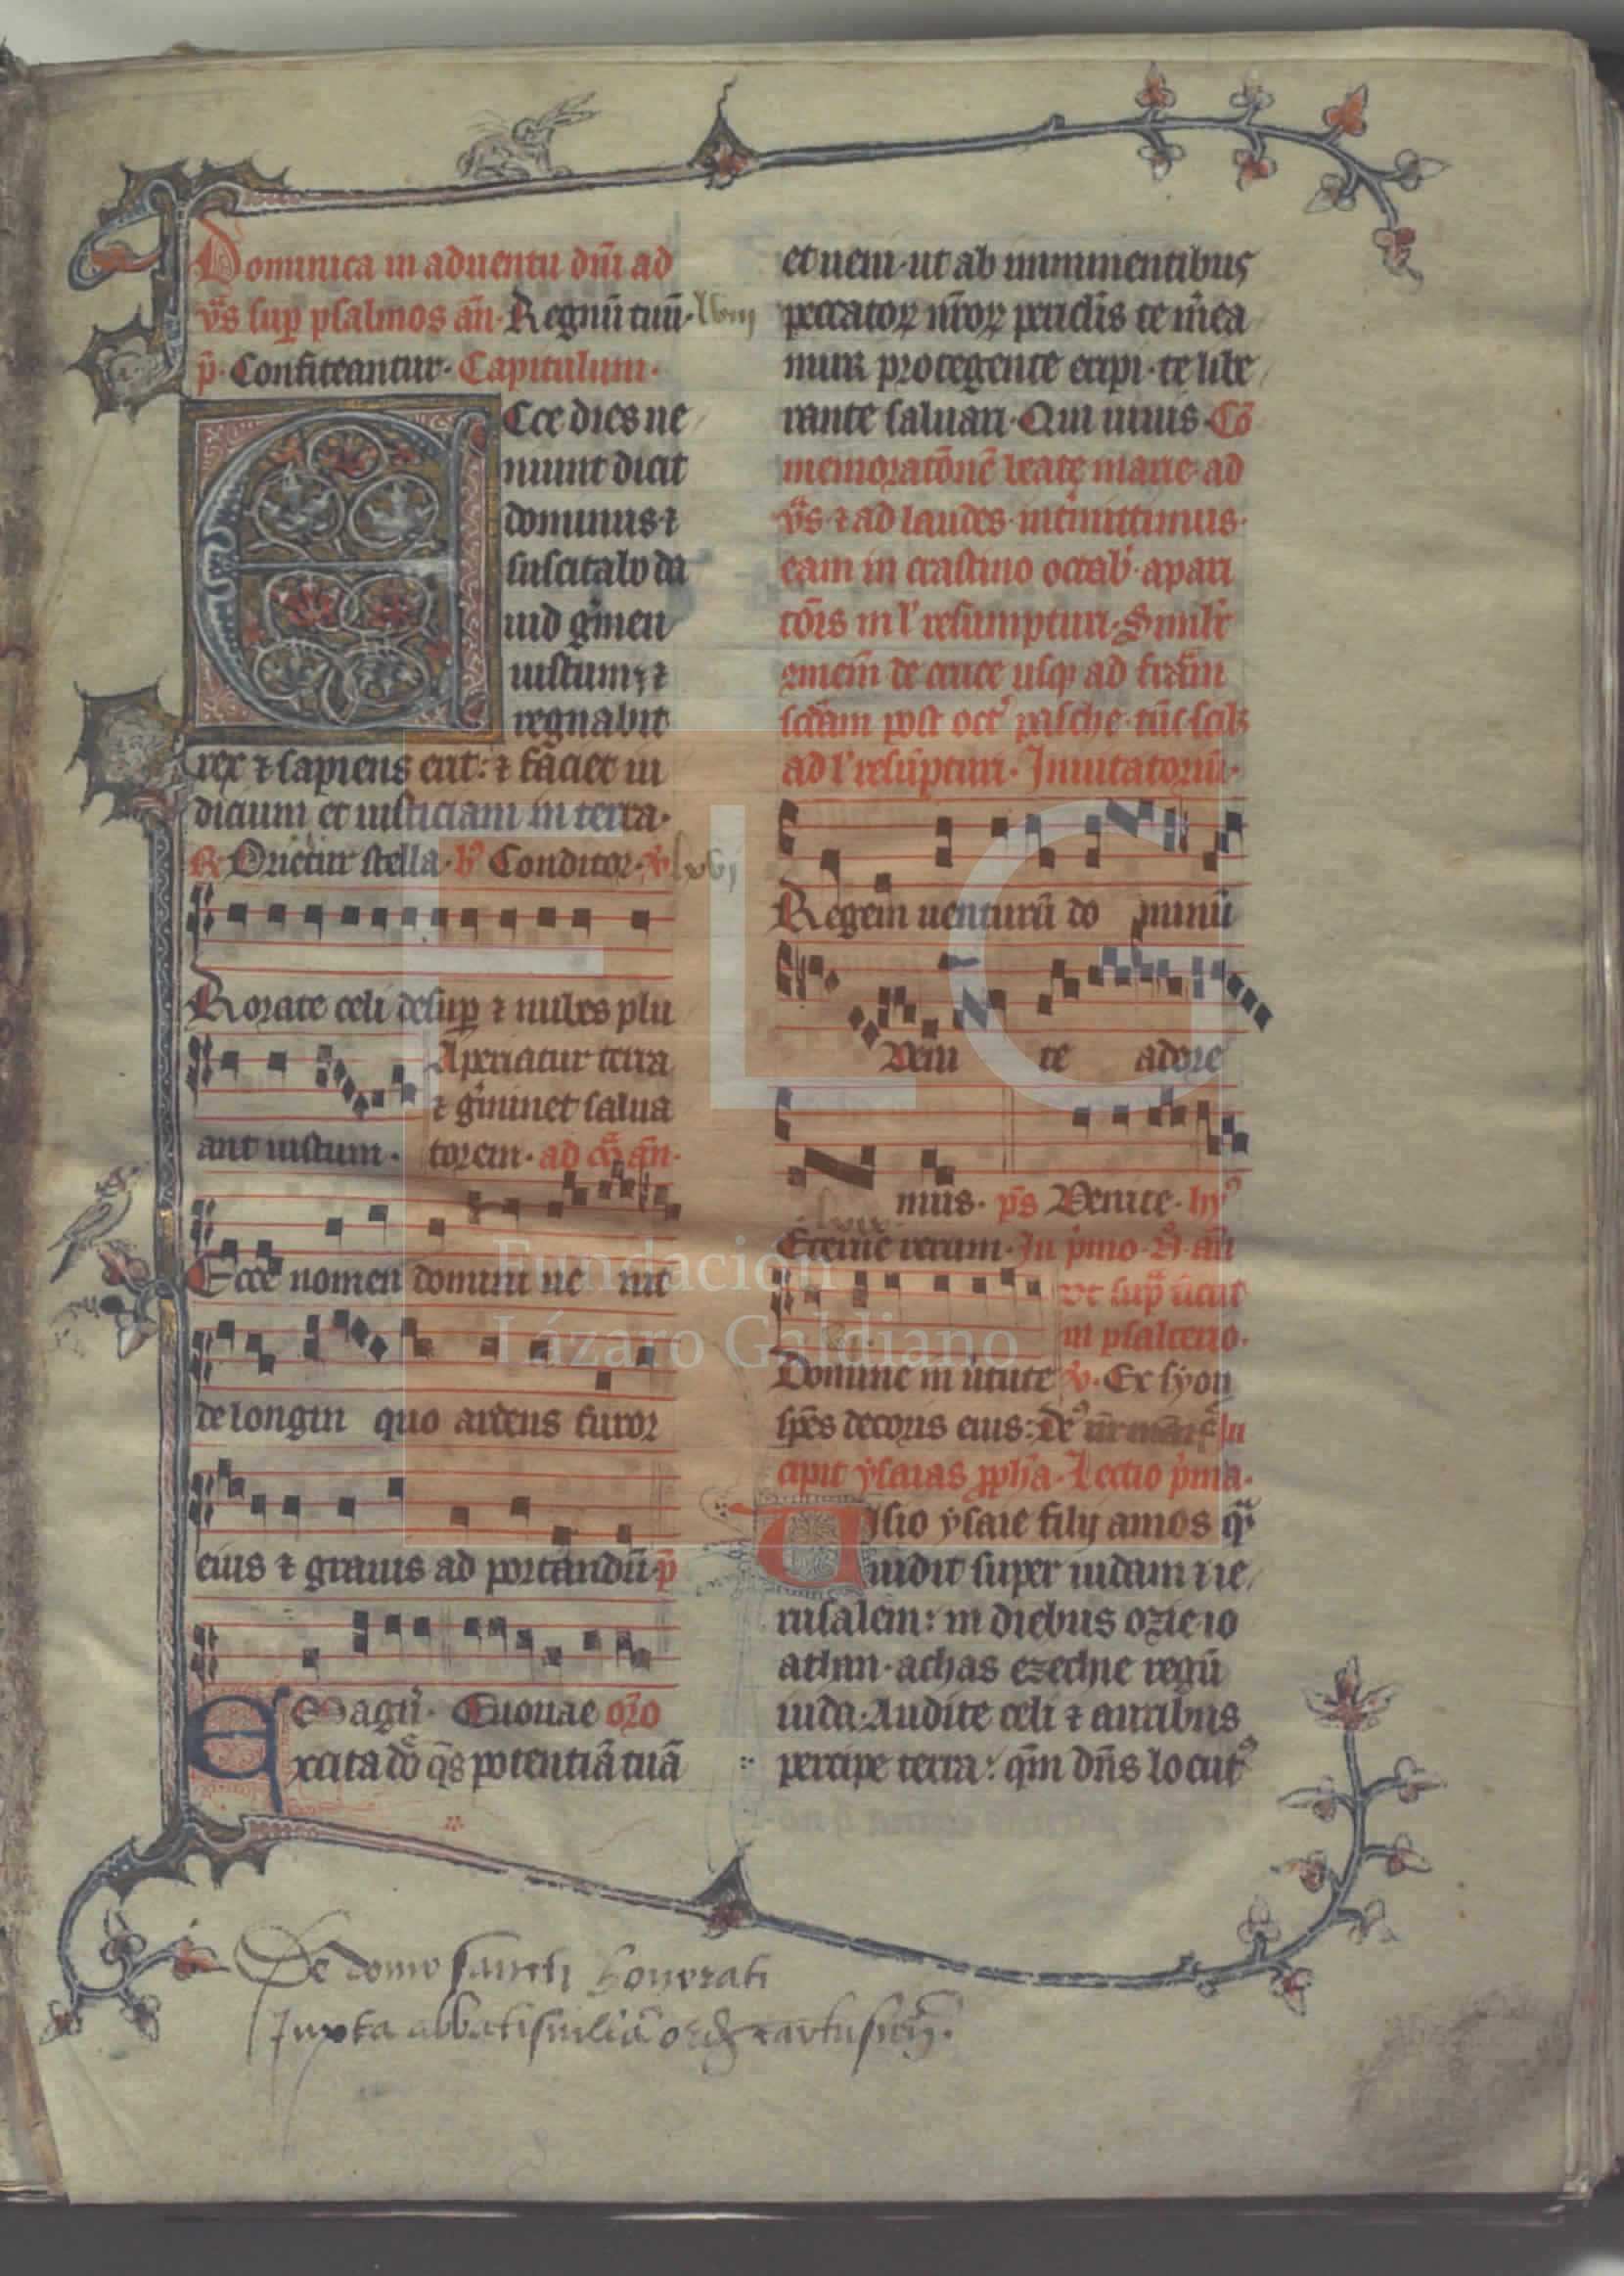 Dominica in aduentu dñi ad
v̾s sup̱ psalmos añ. Regnũ tuũ. lviij
p̃. Confiteantur. Capitulum.
Ecce dies ue
niunt dicit
dominus ⁊
suscitabo da
uid g̾men
iustum, ⁊
regnabit
rex ⁊ sapiens erit: ⁊ faciet iu
dicium et iusticiam in terra.
R̸ Orietur stella. h̾ Conditor. v̾ lxvj
Rorate celi desup̱ ⁊ nubes plu
Aperiatur terra
⁊ g̾minet salua
ant iustum. torem. ad m̃ añ.
Ecce nomen domini ue nit
de longin quo ardens furor
eius ⁊ grauis ad portandũ. p̃
Magñ. Euouae or̃o
Excita dõ q̃s potentiã tuã
et ueni. ut ab imminentibus
peccatoꝝ nr̃oꝝ periclis te m̃ea
mur protegente eripi. te libe
rante saluari. Qui uiuis. Cõ
memoratõnẽ beate marie. ad
v̾s. ⁊ ad laudes. int̾mittimus.
eam in crastino octab̾. apari
tõis in l' resumpturi. Simil̾r
⁊mem̃ de cruce usq̨ ad feriã̃m
scd̃am post oct̾ pasche. tũc scilꝫ
ad l' resũpturi. Inuitatoriũ.
Regem uenturũ do minũ
Veni te adore
mus. p̃s Venite. hy̾
lxix
Eterne rerum. In p̾mo. N̊. añ
vt sup̃ ũtut
in psalterio.
Domine in ũtute v̾. Ex syon
sp̃es decoris eius: de̾ In
cipit ysaias p̱ph̃a. Lectio p̾ma.
Uisio ysaie filij amos q̃
uidit super iudam ⁊ ie
rusalem: in diebus ozie. io
athan. achas ezechie regũ
iuda. Audite celi ⁊ auribus
percipe terra: qm̃ dñs locut̾
De domo sancti honorati
Juxta abbatisuillã ord̃ cartusieñ.
Fundación
Lázaro Galdiano
FLG